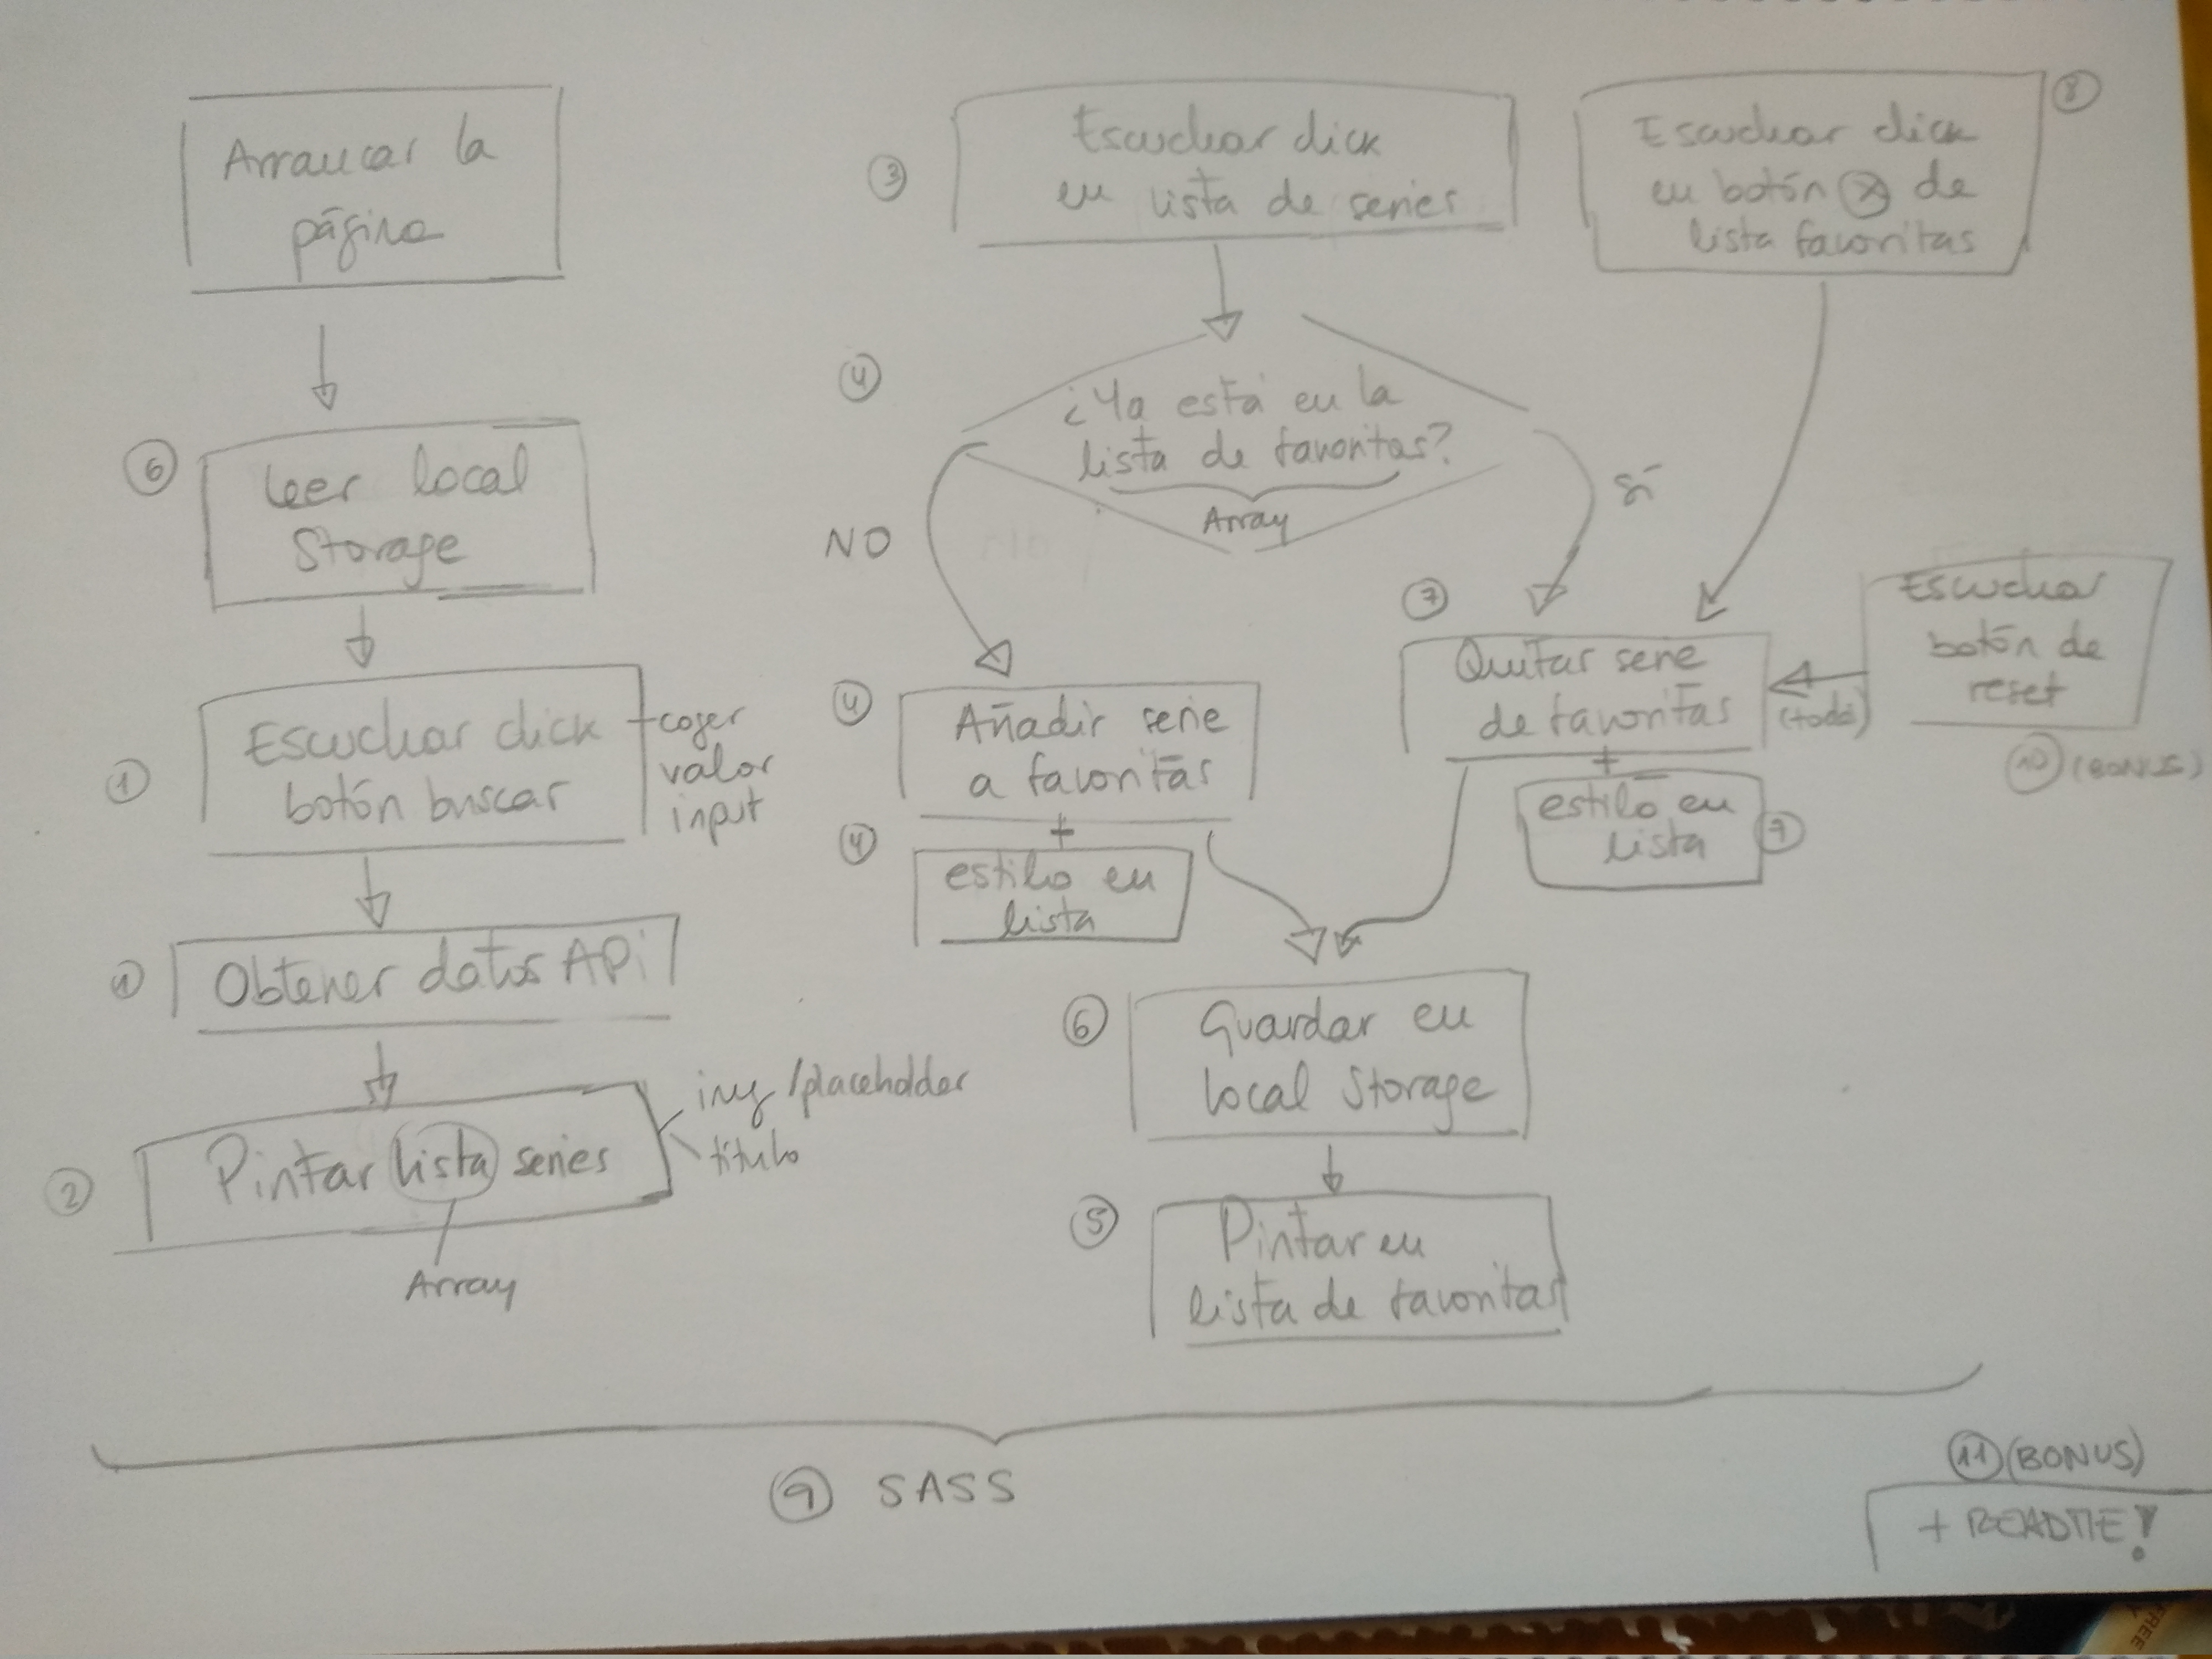 Arrancar la
página
⑥
Leer local
Storage
①
Escuchar click
botón buscar
coger
valor
input
①
Obtener datos APi
②
Pintar lista series
img/placeholder
título
Array
③
Escuchar click
en lista de series
④
¿Ya está en la
lista de favoritas?
Array
NO
SÍ
④
Añadir serie
a favoritas
+
④
estilo en
lista
⑧
Escuchar click
en botón ⓧ de
lista favoritas
⑦
Quitar serie
de favoritas
+
estilo en
lista
⑦
(todo)
Escuchar
botón de
reset
⑩ (BONUS)
⑥
Guardar en
local Storage
⑤
Pintar en
lista de favoritas
⑨ SASS
⑪ (BONUS)
+ README!
FREE